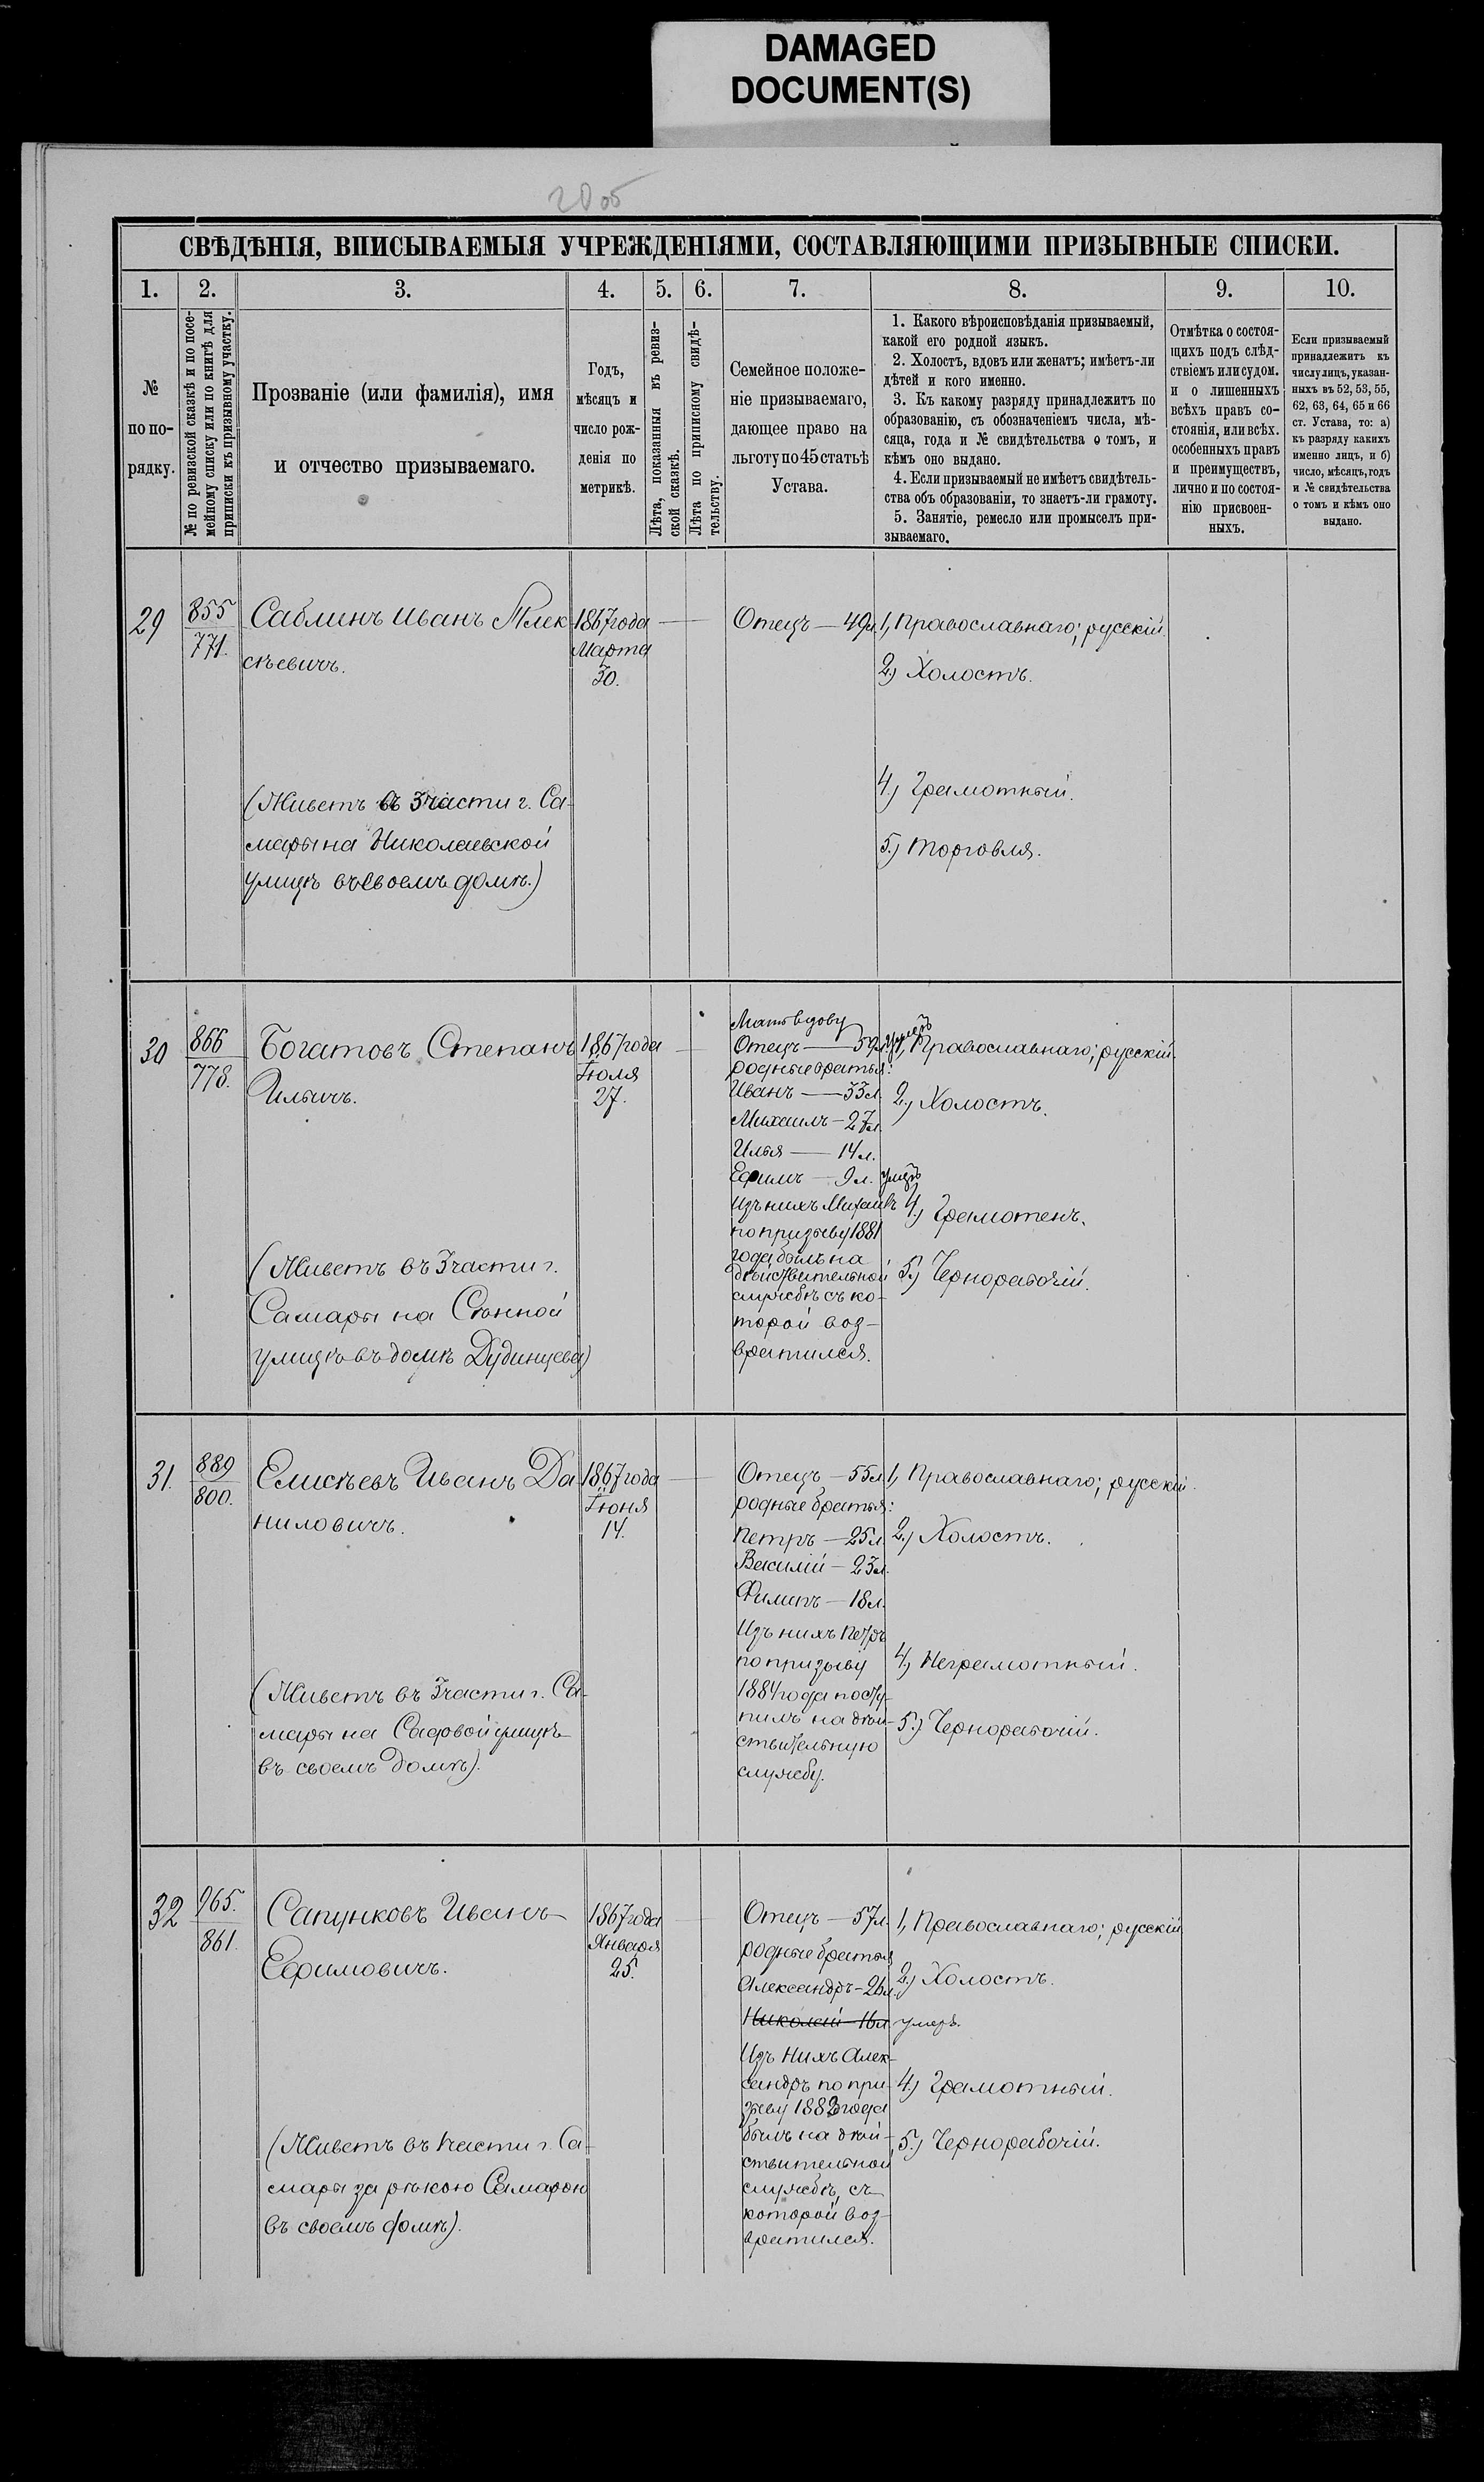 DAMAGED
DOCUMENT(S)
СВѢДѢНІЯ, ВПИСЫВАЕМЫЯ УЧРЕЖДЕНІЯМИ, СОСТАВЛЯЮЩИМИ ПРИЗЫВНЫЕ СПИСКИ.
1.
2.
3.
4.
5.
6.
7.
8.
9.
10.
№
по по-
рядку.
№ по ревизской сказкѣ и по посе-
мейному списку или по книгѣ для
приписки къ призывному участку.
Прозваніе (или фамилія), имя
и отчество призываемаго.
Годъ,
мѣсяцъ и
число рож-
денія по
метрикѣ.
Лѣта, показанныя въ ревиз-
ской сказкѣ.
Лѣта по приписному свидѣ-
тельству.
Семейное положе-
ніе призываемаго,
дающее право на
льготу по 45 статьѣ
Устава.
1. Какого вѣроисповѣданія призываемый,
какой его родной языкъ.
2. Холостъ, вдовъ или женатъ; имѣетъ-ли
дѣтей и кого именно.
3. Къ какому разряду принадлежитъ по
образованію, съ обозначеніемъ числа, мѣ-
сяца, года и № свидѣтельства о томъ, и
кѣмъ оно выдано.
4. Если призываемый не имѣетъ свидѣтель-
ства объ образованіи, то знаетъ-ли грамоту.
5. Занятіе, ремесло или промыселъ при-
зываемаго.
Отмѣтка о состоя-
щихъ подъ слѣд-
ствіемъ или судом.
и о лишенныхъ
всѣхъ правъ со-
стоянія, или всѣх.
особенныхъ правъ
и преимуществъ,
лично и по состоя-
нію присвоен-
ныхъ.
Если призываемый
принадлежитъ къ
числу лицъ, указан-
ныхъ въ 52, 53, 55,
62, 63, 64, 65 и 66
ст. Устава, то: а)
къ разряду какихъ
именно лицъ, и б)
число, мѣсяцъ, годъ
и № свидѣтельства
о томъ и кѣмъ оно
выдано.
29
855
771.
Саблинъ Иванъ Алек
сѣевичъ.
(Живетъ въ 3 части г. Са-
мары на Николаевской
улицѣ въ своемъ домѣ.)
1867 года
Марта
30.
Отецъ — 49 л.
1, Православнаго; русскій.
2.) Холостъ.
4.) Грамотный.
5.) Торговля.
30
866
778.
Богатовъ Степанъ
Ильичъ.
(Живетъ въ 3 части г.
Самары на Сѣнной
улицѣ въ домѣ Дудинцева)
1867 года
Іюля
27.
Мать вдову
Отецъ — 59 л. умеръ
родные братья:
Иванъ — 33 л.
Михаилъ — 27 л.
Илья — 14 л.
Ефимъ — 9 л. умеръ
Изъ нихъ Михаилъ
по призыву 1881
года былъ на
дѣйствительной
службѣ съ ко-
торой воз-
вратился.
1, Православнаго; русскій.
2.) Холостъ.
4.) Грамотенъ.
5.) Чернорабочій.
31.
889
800.
Елисѣевъ Иванъ Да-
ниловичъ.
(Живетъ въ 3 части г. Са-
мары на Садовой улицѣ
въ своемъ домѣ).
1867 года
Іюня
14.
Отецъ — 55 л.
родные братья:
Петръ — 25 л.
Василій — 23 л.
Филипъ — 18 л.
Изъ нихъ Петръ
по призыву
1884 года посту-
пилъ на дѣй-
ствительную
службу.
1, Православнаго; русскій.
2.) Холостъ.
4.) Неграмотный.
5.) Чернорабочій.
32
965.
861.
Сапунковъ Иванъ
Ефимовичъ.
(Живетъ въ 1 части г. Са-
мары за рѣкою Самарою
въ своемъ домѣ).
1867 года
Января
25.
Отецъ — 57 л.
родные братья
Александръ — 26 л.
Николай — 16 л. умеръ.
Изъ нихъ Алек-
сандръ по при-
зыву 1882 года
былъ на дѣй-
ствительной
службѣ, съ
которой воз-
вратился.
1, Православнаго; русскій
2.) Холостъ.
4.) Грамотный.
5.) Чернорабочій.